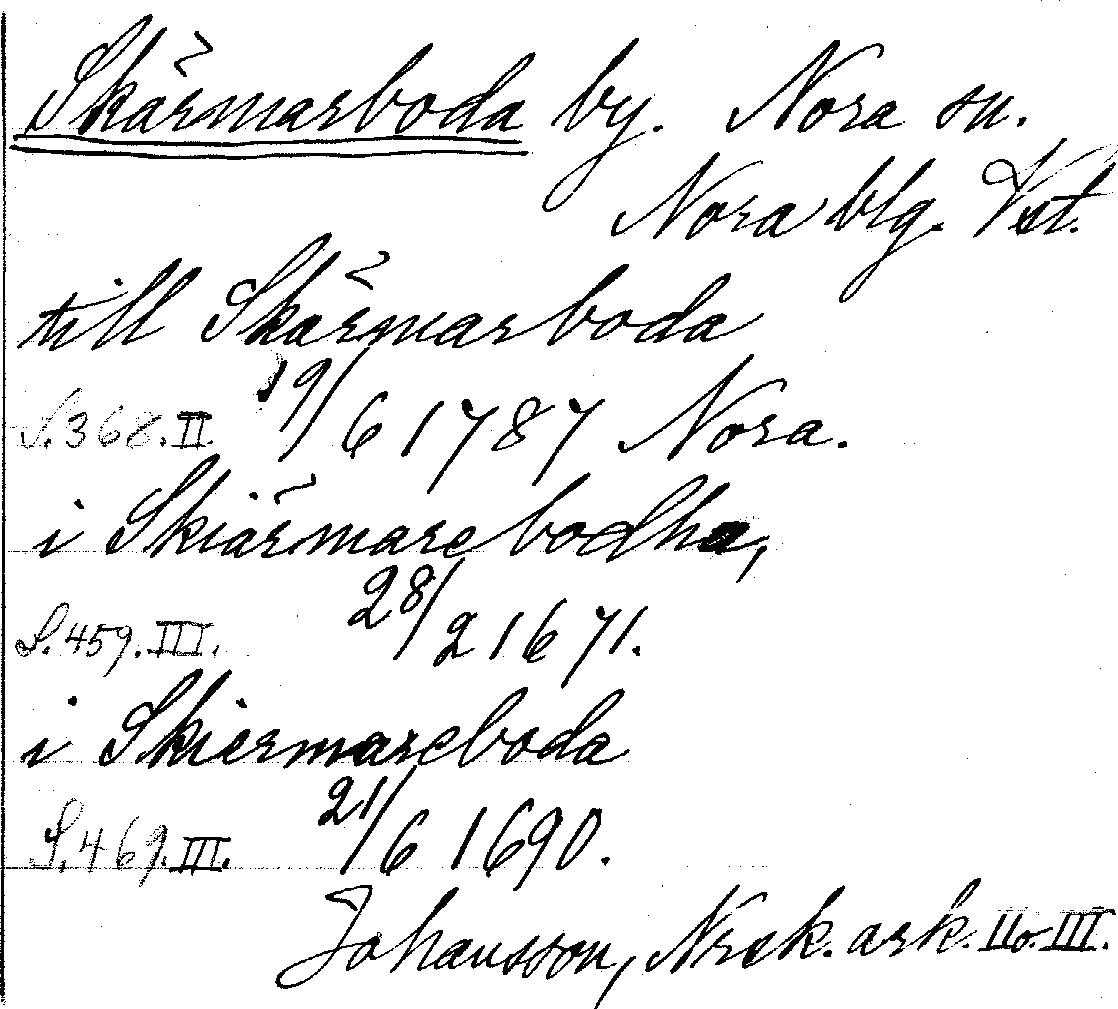 Skärmarboda by. Nora sn.
Nora blg. Vst.
till Skärmarboda
S.368.II 19/6 1787 Nora.
i Skiärmarebodha,
S.459.III. 28/2 1671.
i Skiermareboda
S.469.III. 21/6 1690.
Johansson, Nrck. ark. II o. III.